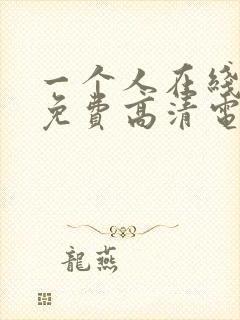 一个人在线
免费高清电
龍燕